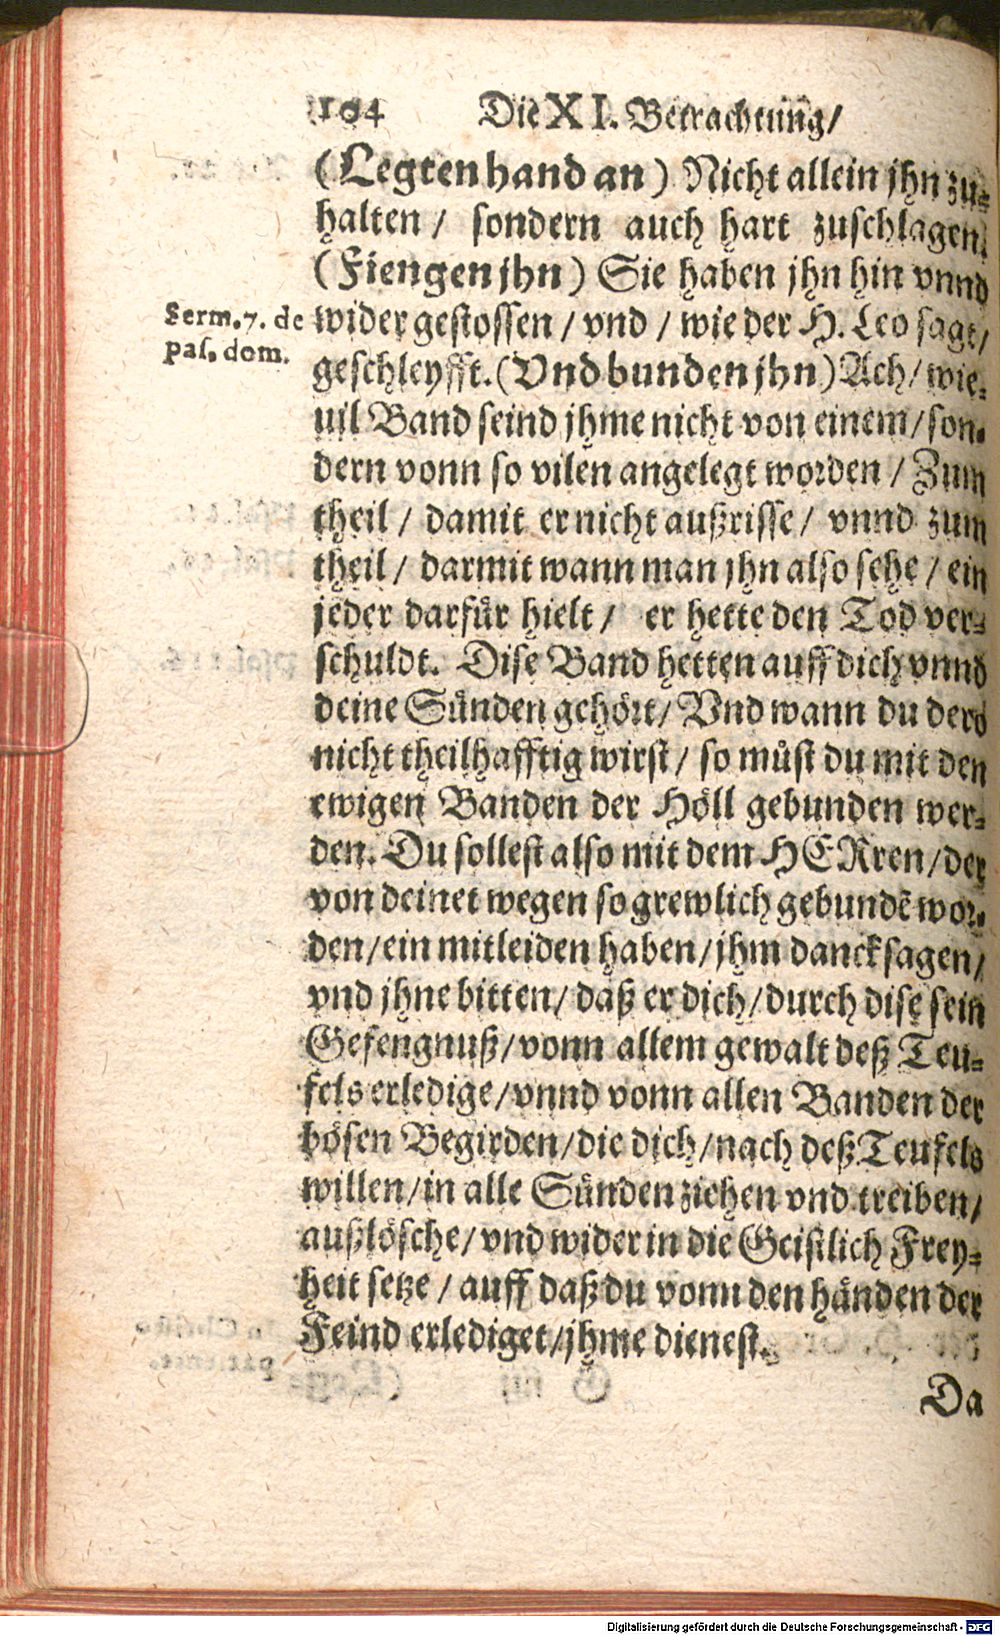 104 Die XI. Betrachtung/
(Legten hand an) Nicht allein jhn zu-
halten/ sondern auch hart zuschlagen.
(Fiengen jhn) Sie haben jhn hin vnnd
Serm. 7. de
pas. dom.
wider gestossen/ vnd/ wie der H. Leo sagt/
geschleyfft. (Vnd bunden jhn) Ach/ wie-
uil Band seind jhme nicht von einem/ son-
dern vonn so vilen angelegt worden/ Zum
theil/ damit er nicht außrisse/ vnnd zum
theil/ darmit wann man jhn also sehe/ ein
jeder darfür hielt/ er hette den Tod ver-
schuldt. Dise Band hetten auff dich vnnd
deine Sünden gehört/ Vnd wann du dero
nicht theilhafftig wirst/ so můst du mit den
ewigen Banden der Höll gebunden wer-
den. Du sollest also mit dem HERren/ der
von deinet wegen so grewlich gebundē wor-
den/ ein mitleiden haben/ jhm dancksagen/
vnd jhne bitten/ daß er dich/ durch dise sein
Gefengnuß/ vonn allem gewalt deß Teu-
fels erledige/ vnnd vonn allen Banden der
bösen Begirden/ die dich/ nach deß Teufels
willen/ in alle Sünden ziehen vnd treiben/
außlösche/ vnd wider in die Geistlich Frey-
heit setze/ auff daß du vonn den händen der
Feind erlediget/ jhme dienest.
Da
Digitalisierung gefördert durch die Deutsche Forschungsgemeinschaft - DFG